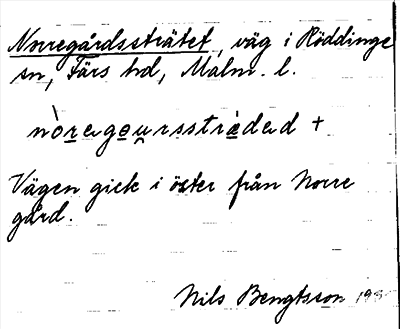 Norregårdssträtet, väg i Röddinge
sn, Färs hd, Malm. l.
nòregeu̯rssträded +
Vägen gick i öster från Norre
gård.
Nils Bengtsson